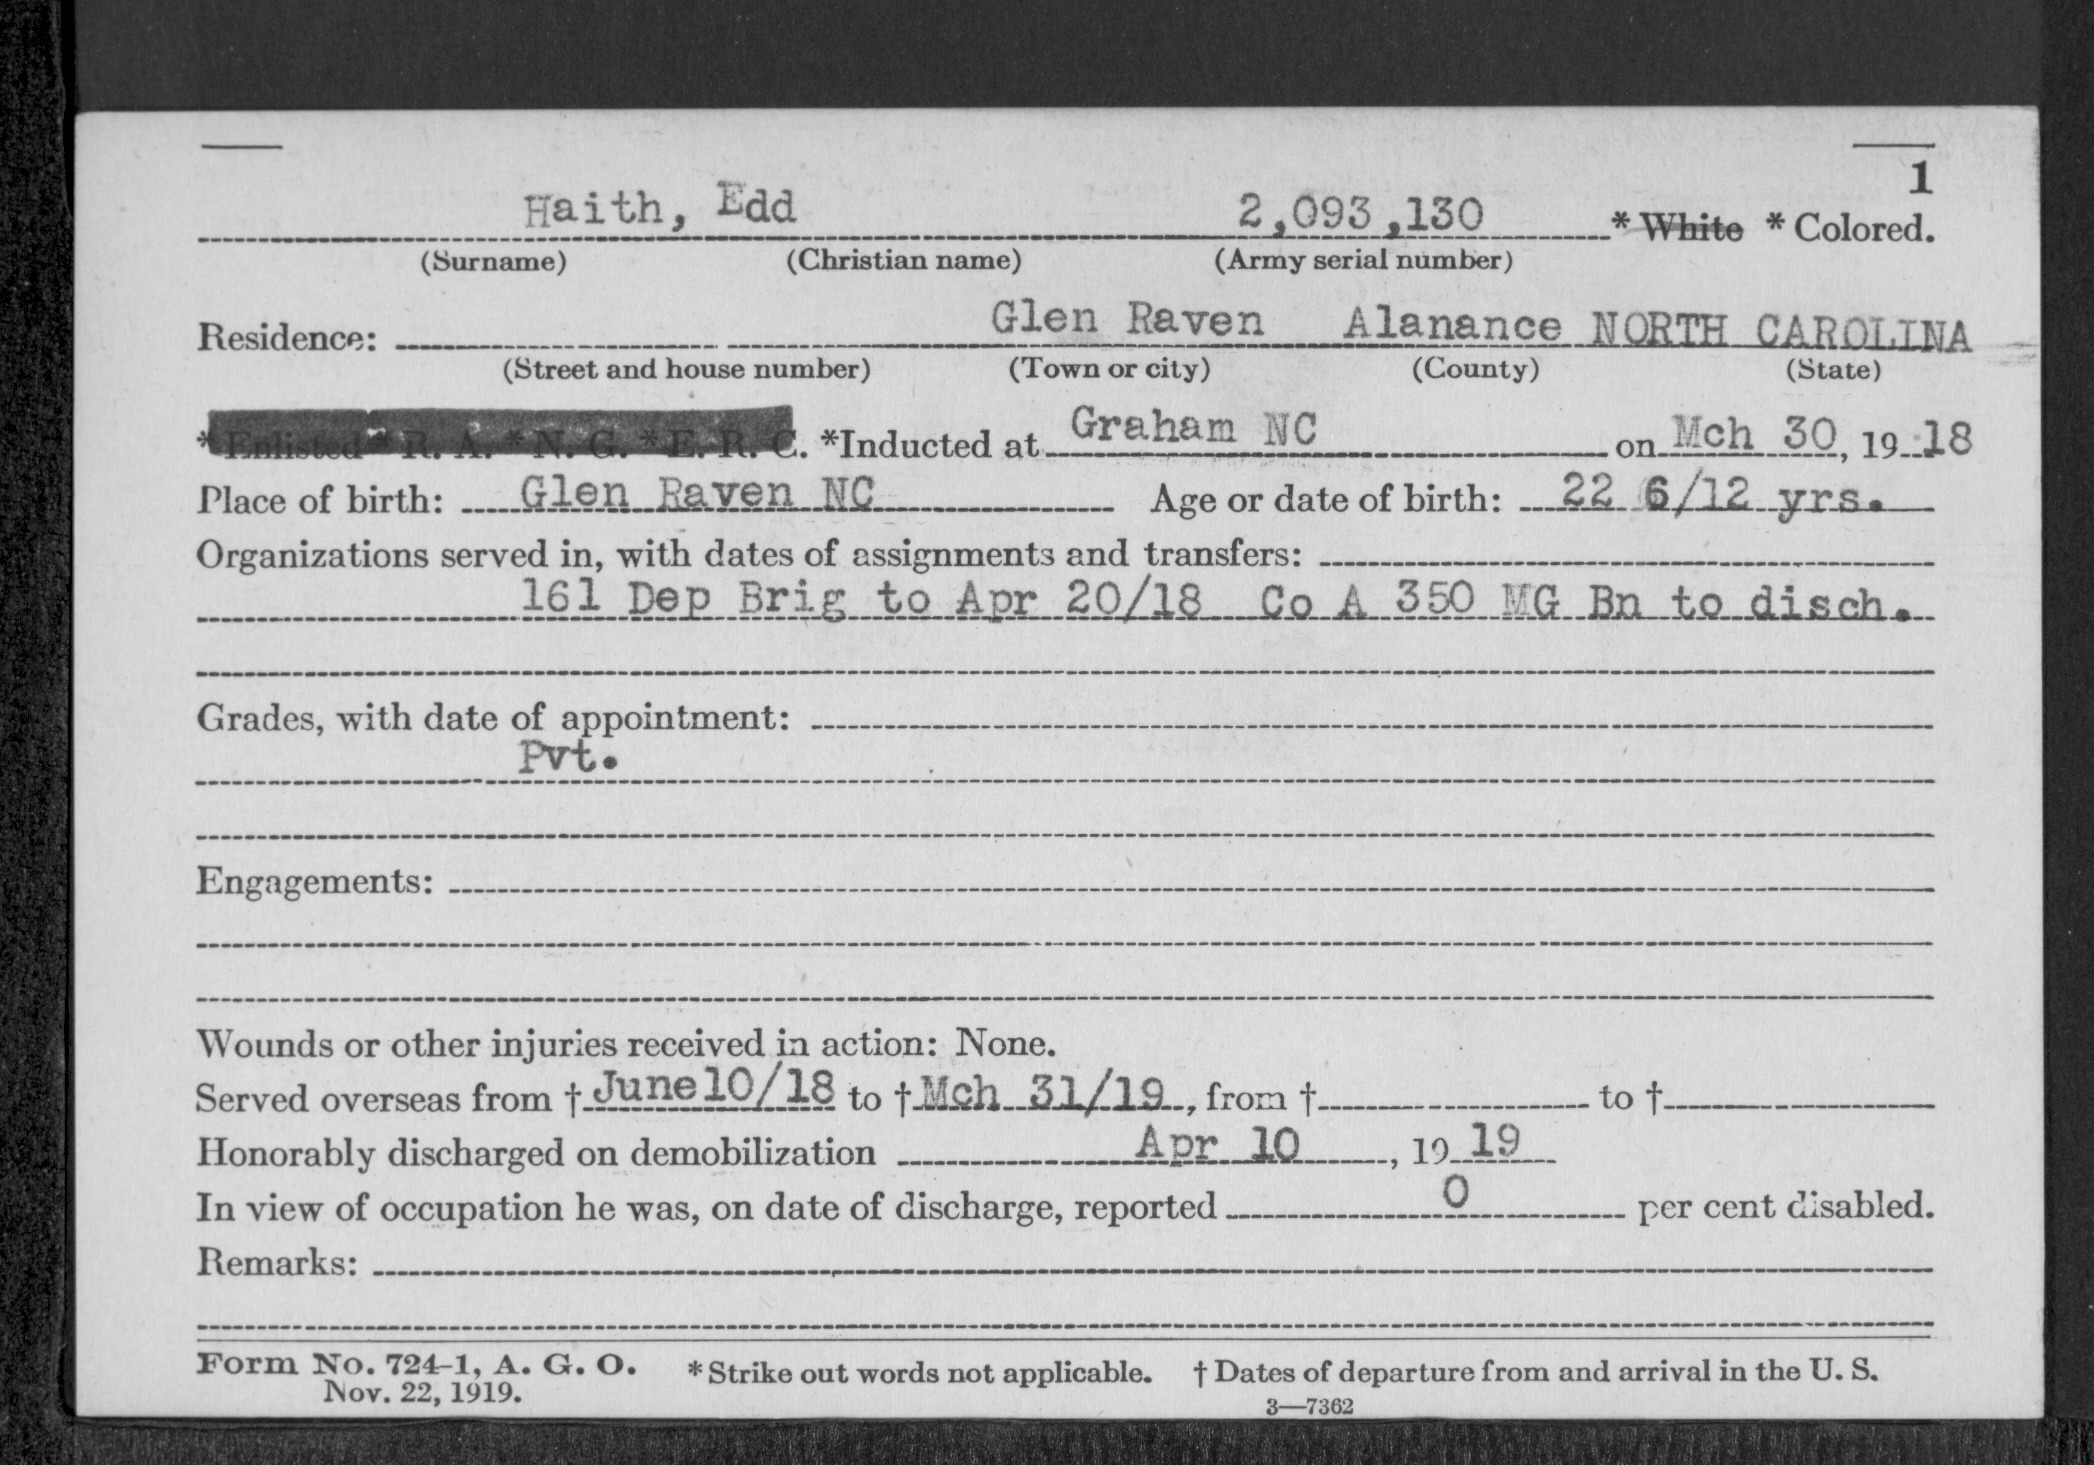 1
Haith, Edd 2,093,130 * White * Colored.
(Surname) (Christian name) (Army serial number)
Residence: Glen Raven Alanance NORTH CAROLINA
(Street and house number) (Town or city) (County) (State)
* Enlisted * R. A. * N. G. * E. R. C. *Inducted at Graham NC on Mch 30, 19 18
Place of birth: Glen Raven NC Age or date of birth: 22 6/12 yrs.
Organizations served in, with dates of assignments and transfers:
161 Dep Brig to Apr 20/18 Co A 350 MG Bn to disch.
Grades, with date of appointment:
Pvt.
Engagements:
Wounds or other injuries received in action: None.
Served overseas from † June10/18 to † Mch 31/19, from † to †
Honorably discharged on demobilization Apr 10, 19 19
In view of occupation he was, on date of discharge, reported 0 per cent disabled.
Remarks:
Form No. 724-1, A. G. O. * Strike out words not applicable. † Dates of departure from and arrival in the U. S.
Nov. 22, 1919.
3—7362